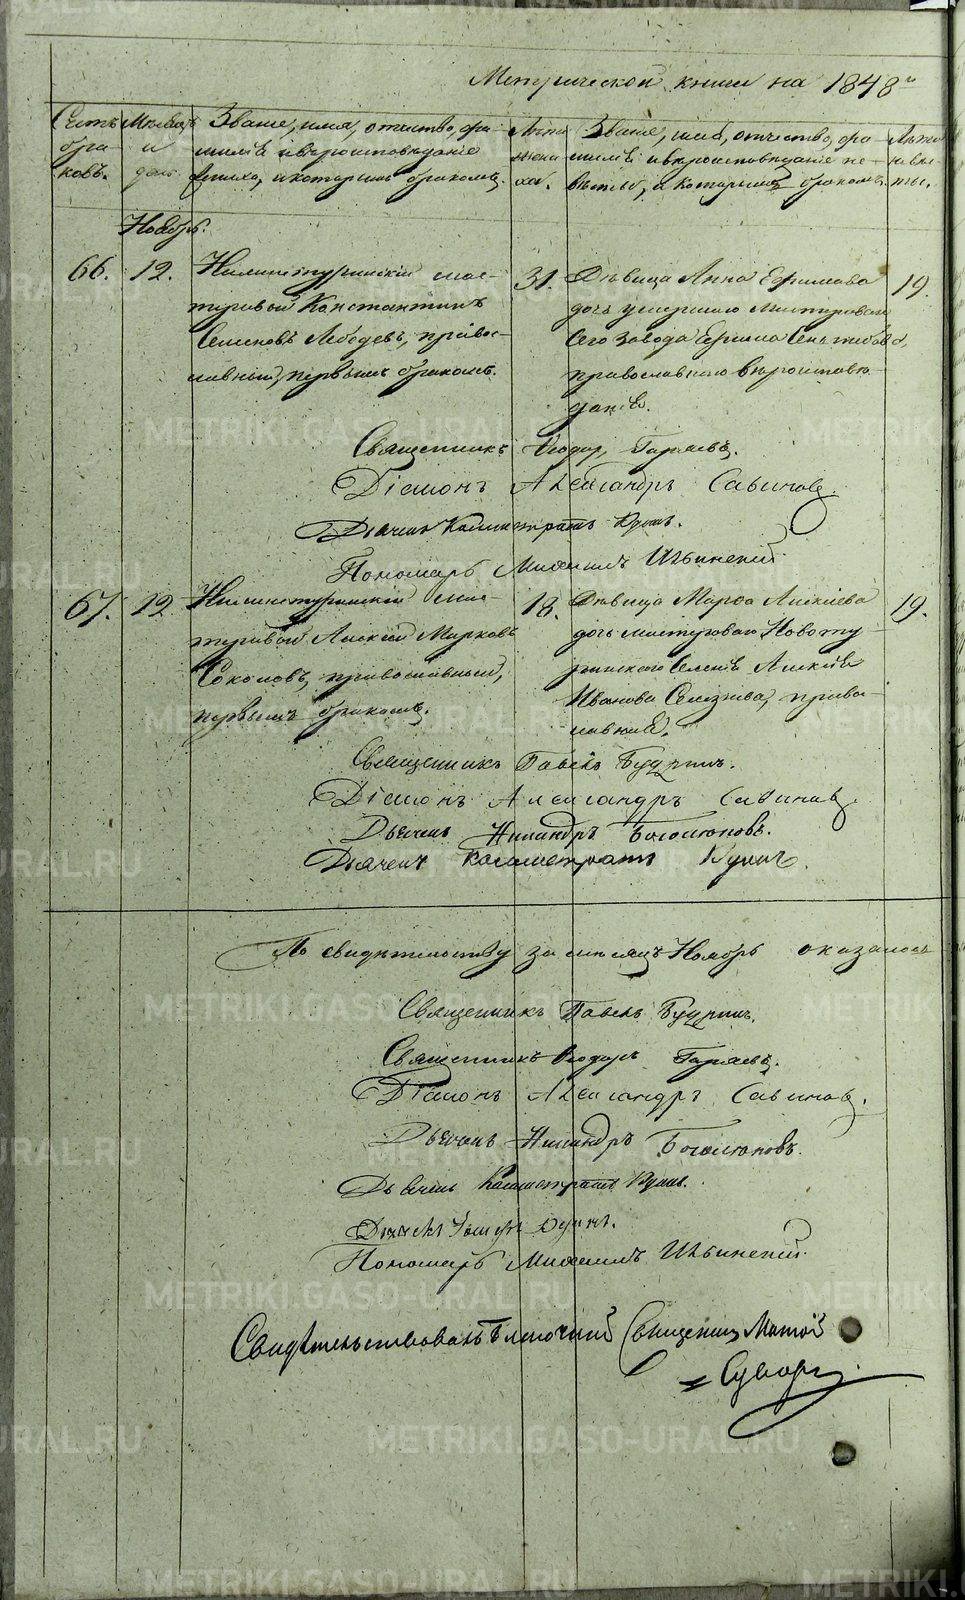 Метрической книги на 1848й
Счетъ бра-ковъ.
Месяцъ и день.
Званіе, имя, отчество, фа-
милія и вероисповеданіе
жениха, и которымъ бракомъ.
Лета жени-ха.
Званіе, имя, отчество, фа-
милія и вероисповеданіе не-
весты, и которымъ бракомъ.
Лета неве-сты.
Ноябрь.
66. 12. Нижнетуринскій мас-
теровой Константинъ
Семеновъ Лебедевъ, правос-
лавный, первымъ бракомъ.
31.
Девица Анна Ефимова
дочь умершаго мастероваго
сего завода Ефима
православнаго вероиспове-
данія.
19.
Священникъ Ѳеодоръ Гаряевъ.
Діаконъ Александръ Савиновъ.
Дьячекъ Каллистратъ
Пономарь Михаилъ Ильинский.
67. 12. Нижнетуринскій мас-
теровой Алексей Марковъ
Соколовъ, православный,
первымъ бракомъ.
18.
Девица Марѳа Алексеева
дочь мастероваго Новоту-
ринского селенія Алексея
Иванова Селезнева, право-
славная.
19.
Священникъ Павелъ
Діаконъ Александръ Савиновъ.
Дьячекъ Никандръ Боголюповъ.
Дьячекъ Каллистратъ
По свидетельству за месяцъ Ноябрь оказалось
Священникъ Павелъ
Священникъ Ѳеодоръ Гаряевъ.
Діаконъ Александръ Савиновъ.
Дьячекъ Никандръ Боголюповъ.
Дьячекъ Каллистратъ
Дьячекъ
Пономарь Михаилъ Ильинский.
Свидетельствовалъ Благочинный Священникъ
METRIKI.GASO-URAL.RU